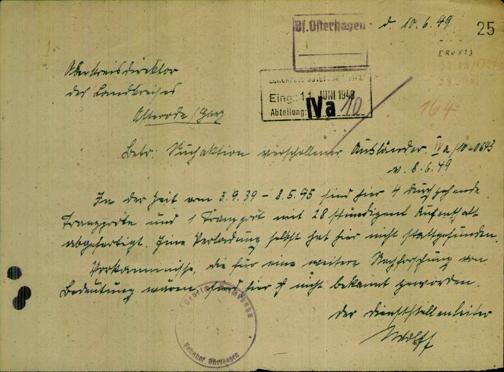 Bf. Osterhagen
d. 10.6.49
25
Oberkreisdirektor
des Landkreises
Osterode/Harz
Eing.: 11. JUNI 1949
Abteilung: IVa/10
164
Betr. Suchaktion verschollener Ausländer IVa/10-0643
v. 8.6.49
In der Zeit vom 3.9.39 - 8.5.45 sind hier 4 durchgehende
Transporte und 1 Transport mit 28 stündigem Aufenthalt
abgefertigt. Eine Verladung selbst hat hier nicht stattgefunden
Vorkommnisse, die für eine weitere Nachforschung von
Bedeutung wären, sind hier nicht bekannt geworden.
Der Dienststellenleiter
Wolff
Bahnhof Osterhagen